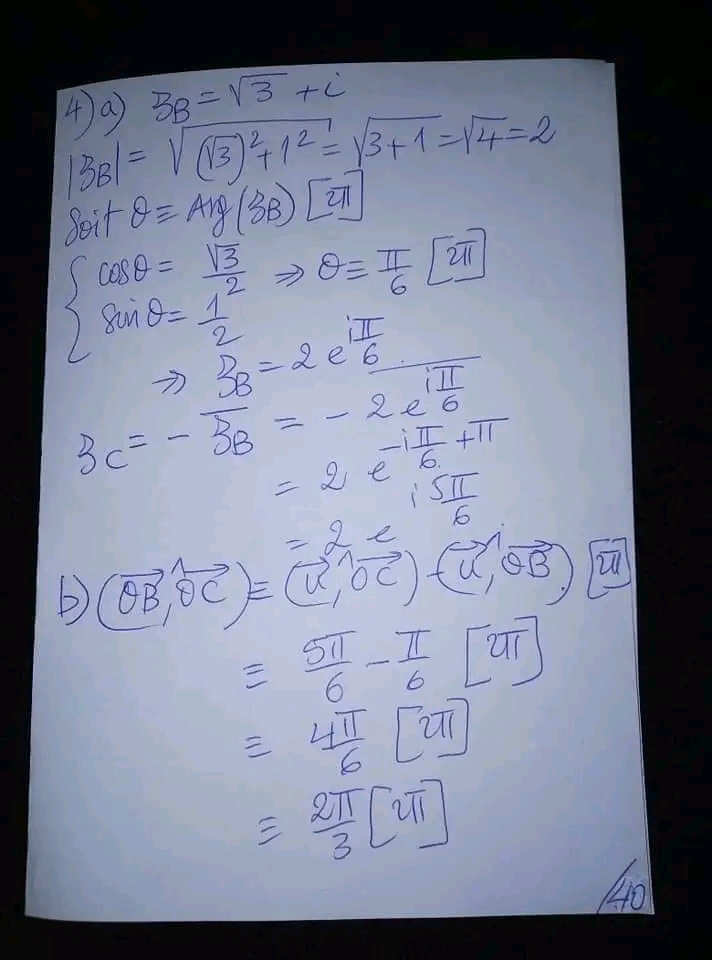 4)a) z_B = √3 + i
|z_B| = √((√3)² + 1²) = √(3+1) = √4 = 2
Soit θ ≡ Arg(z_B) [2π]
{ cosθ = √3/2
sinθ = 1/2 ⇒ θ ≡ π/6 [2π]
⇒ z_B = 2 e^(iπ/6)
z_C = - \overline{z_B} = - \overline{2 e^(iπ/6)}
= 2 e^(-iπ/6 + π)
= 2 e^(i5π/6)
b) (OB⃗,^OC⃗) ≡ (u⃗,^OC⃗) - (u⃗,^OB⃗) [2π]
≡ 5π/6 - π/6 [2π]
≡ 4π/6 [2π]
≡ 2π/3 [2π]
/40